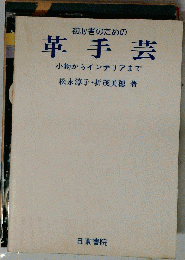 初心者のための
革手芸
小物からインテリアまで
松永淳子・折茂美穂 著
日東書院